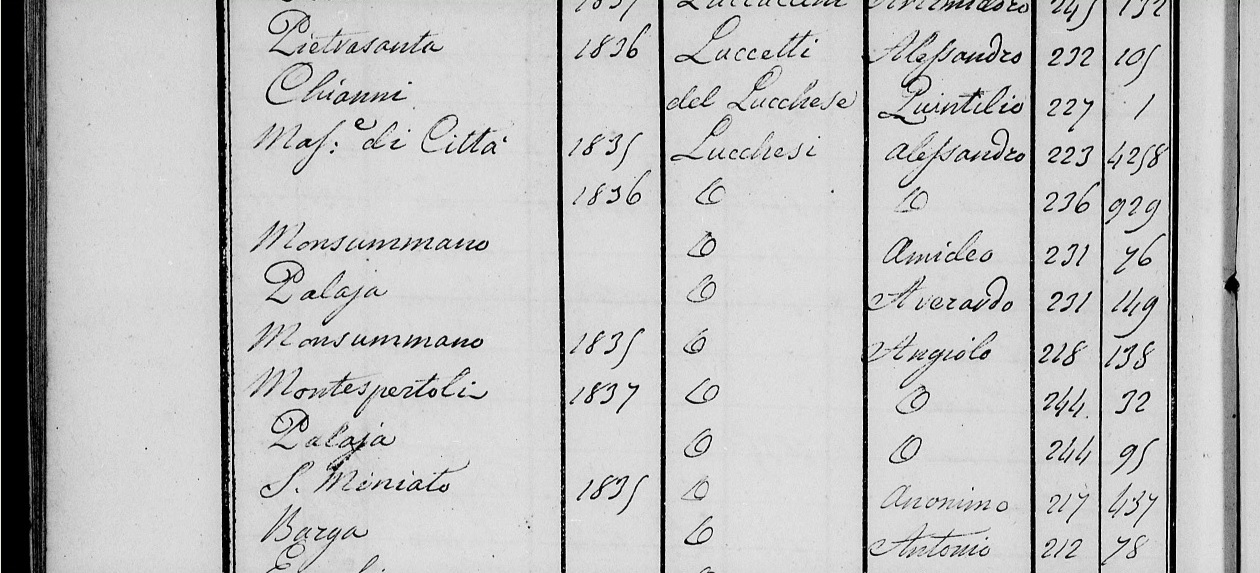 1837 245 132
Pietrasanta 1836 Luccetti Alessandro 232 105
Chianni del Lucchese Quintilio 227 1
Mas:e di Città 1835 Lucchesi Alessandro 223 4258
1836 O O 236 929
Monsummano O Amideo 231 76
Palaja O Averardo 231 149
Monsummano 1835 O Angiolo 218 138
Montespertoli 1837 O O 244. 32
Palaja O O 244 95
S. Miniato 1835 O Anonimo 217 437
Barga O Antonio 212 78